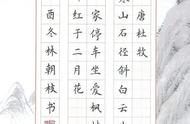 唐杜牧
山石径斜白云
家停车坐爱枫
红于二月花
酉冬林朝枝书